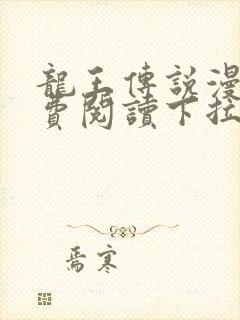 龍王傳說漫
費閱讀下拉
焉寒